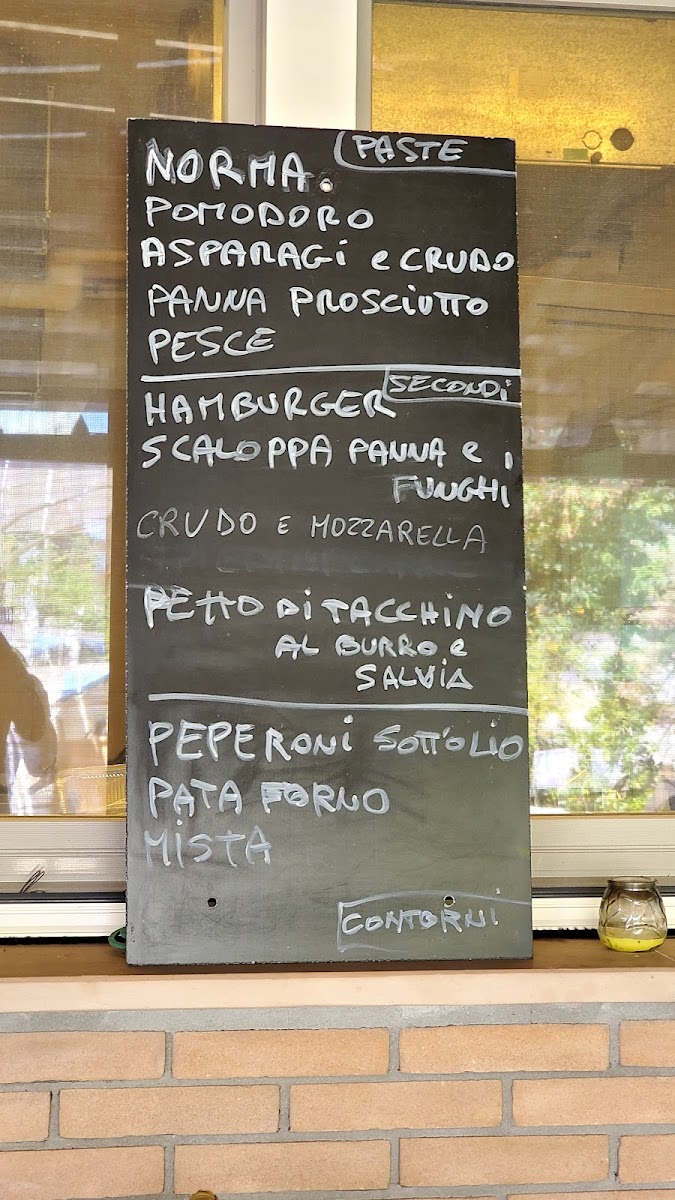 PASTE
NORMA
POMODORO
ASPARAGi e CRUDO
PANNA PROSCiUTTO
PESCE
SECONDi
HAMBURGER
SCALOPPA PANNA e i
FUNGHI
CRUDO E MOZZARELLA
PETTO Di TACCHINO
AL BURRO e
SALVIA
PEPERONi SOTT'OLIO
PATA FORNO
MiSTA
CONTORNi